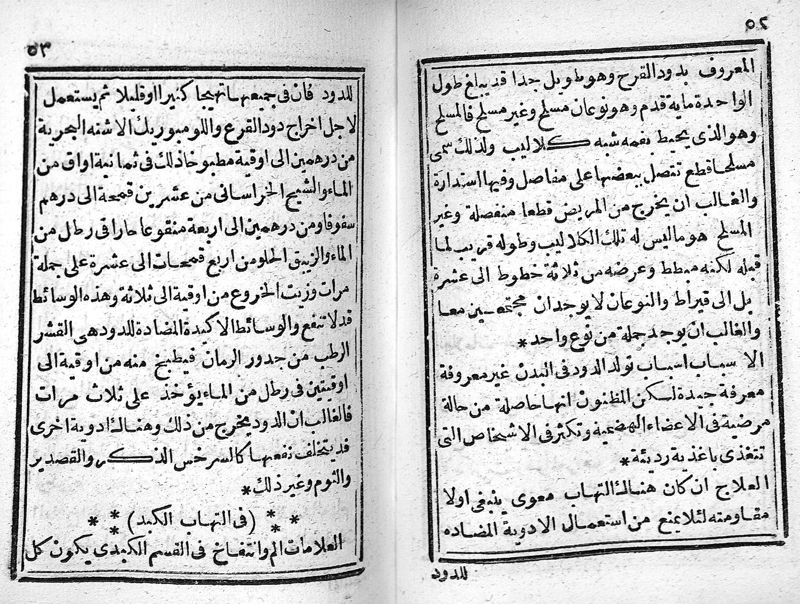 ٥٢
المعروف بدود القرح وهو طويل جدا قد يبلغ طول
الواحدة ماية قدم وهو نوعان مسلح وغير مسلح فالمسلح
وهو الذى يحيط بفمه شبه كلاليب ولذلك سمى
مسلحا قطع تتصل ببعضها على مفاصل وفيها استدارة
والغالب ان يخرج من المريض قطعا منفصلة وغير
المسلح هو ماليس له تلك الكلاليب وطوله قريب لما
قبله لكنه مبطط وعرضه من ثلاثة خطوط الى عشرة
بل الى قيراط والنوعان لا يوجدان مجتمعين معا
والغالب ان يوجد جملة من نوع واحد *
الاسباب اسباب تولد الدود فى البدن غير معروفة
معرفة جيدة لكن المظنون انها حاصلة من حالة
مرضية فى الاعضاء الهضمية وتكثر فى الاشخاص التى
تتغذى باغذية رديئة *
العلاج ان كان هناك التهاب معوى ينبغى اولا
مقاومته لئلا يمنع من استعمال الادوية المضاده
للدود
٥٣
للدود فان فى جميعها تهيجا كثيرا او قليلا ثم يستعمل
لاجل اخراج دود القرع واللومبوريك الاشنه البحرية
من درهمين الى اوقية مطبوخا ذلك فى ثمانية اواق من
الماء والشيح الخراسانى من عشرين قمحة الى درهم
سفوفا ومن درهمين الى اربعة منقوعا حارا فى رطل من
الماء والزيبق الحلو من اربع قمحات الى عشرة على جملة
مرات وزيت الخروع من اوقية الى ثلاثة وهذه الوسائط
قد لا تنفع والوسائط الاكيدة المضادة للدود هى القشر
الرطب من جدور الرمان فيطبخ منه من اوقية الى
اوقيتين فى رطل من الماء يؤخذ على ثلاث مرات
فالغالب ان الدود يخرج من ذلك وهناك ادوية اخرى
قد يتخلف نفعها كالسرخس الذكر والقصدير
والثوم وغير ذلك *
* * (فى التهاب الكبد) * *
العلامات الم وانتفاخ فى القسم الكبدى يكون كل